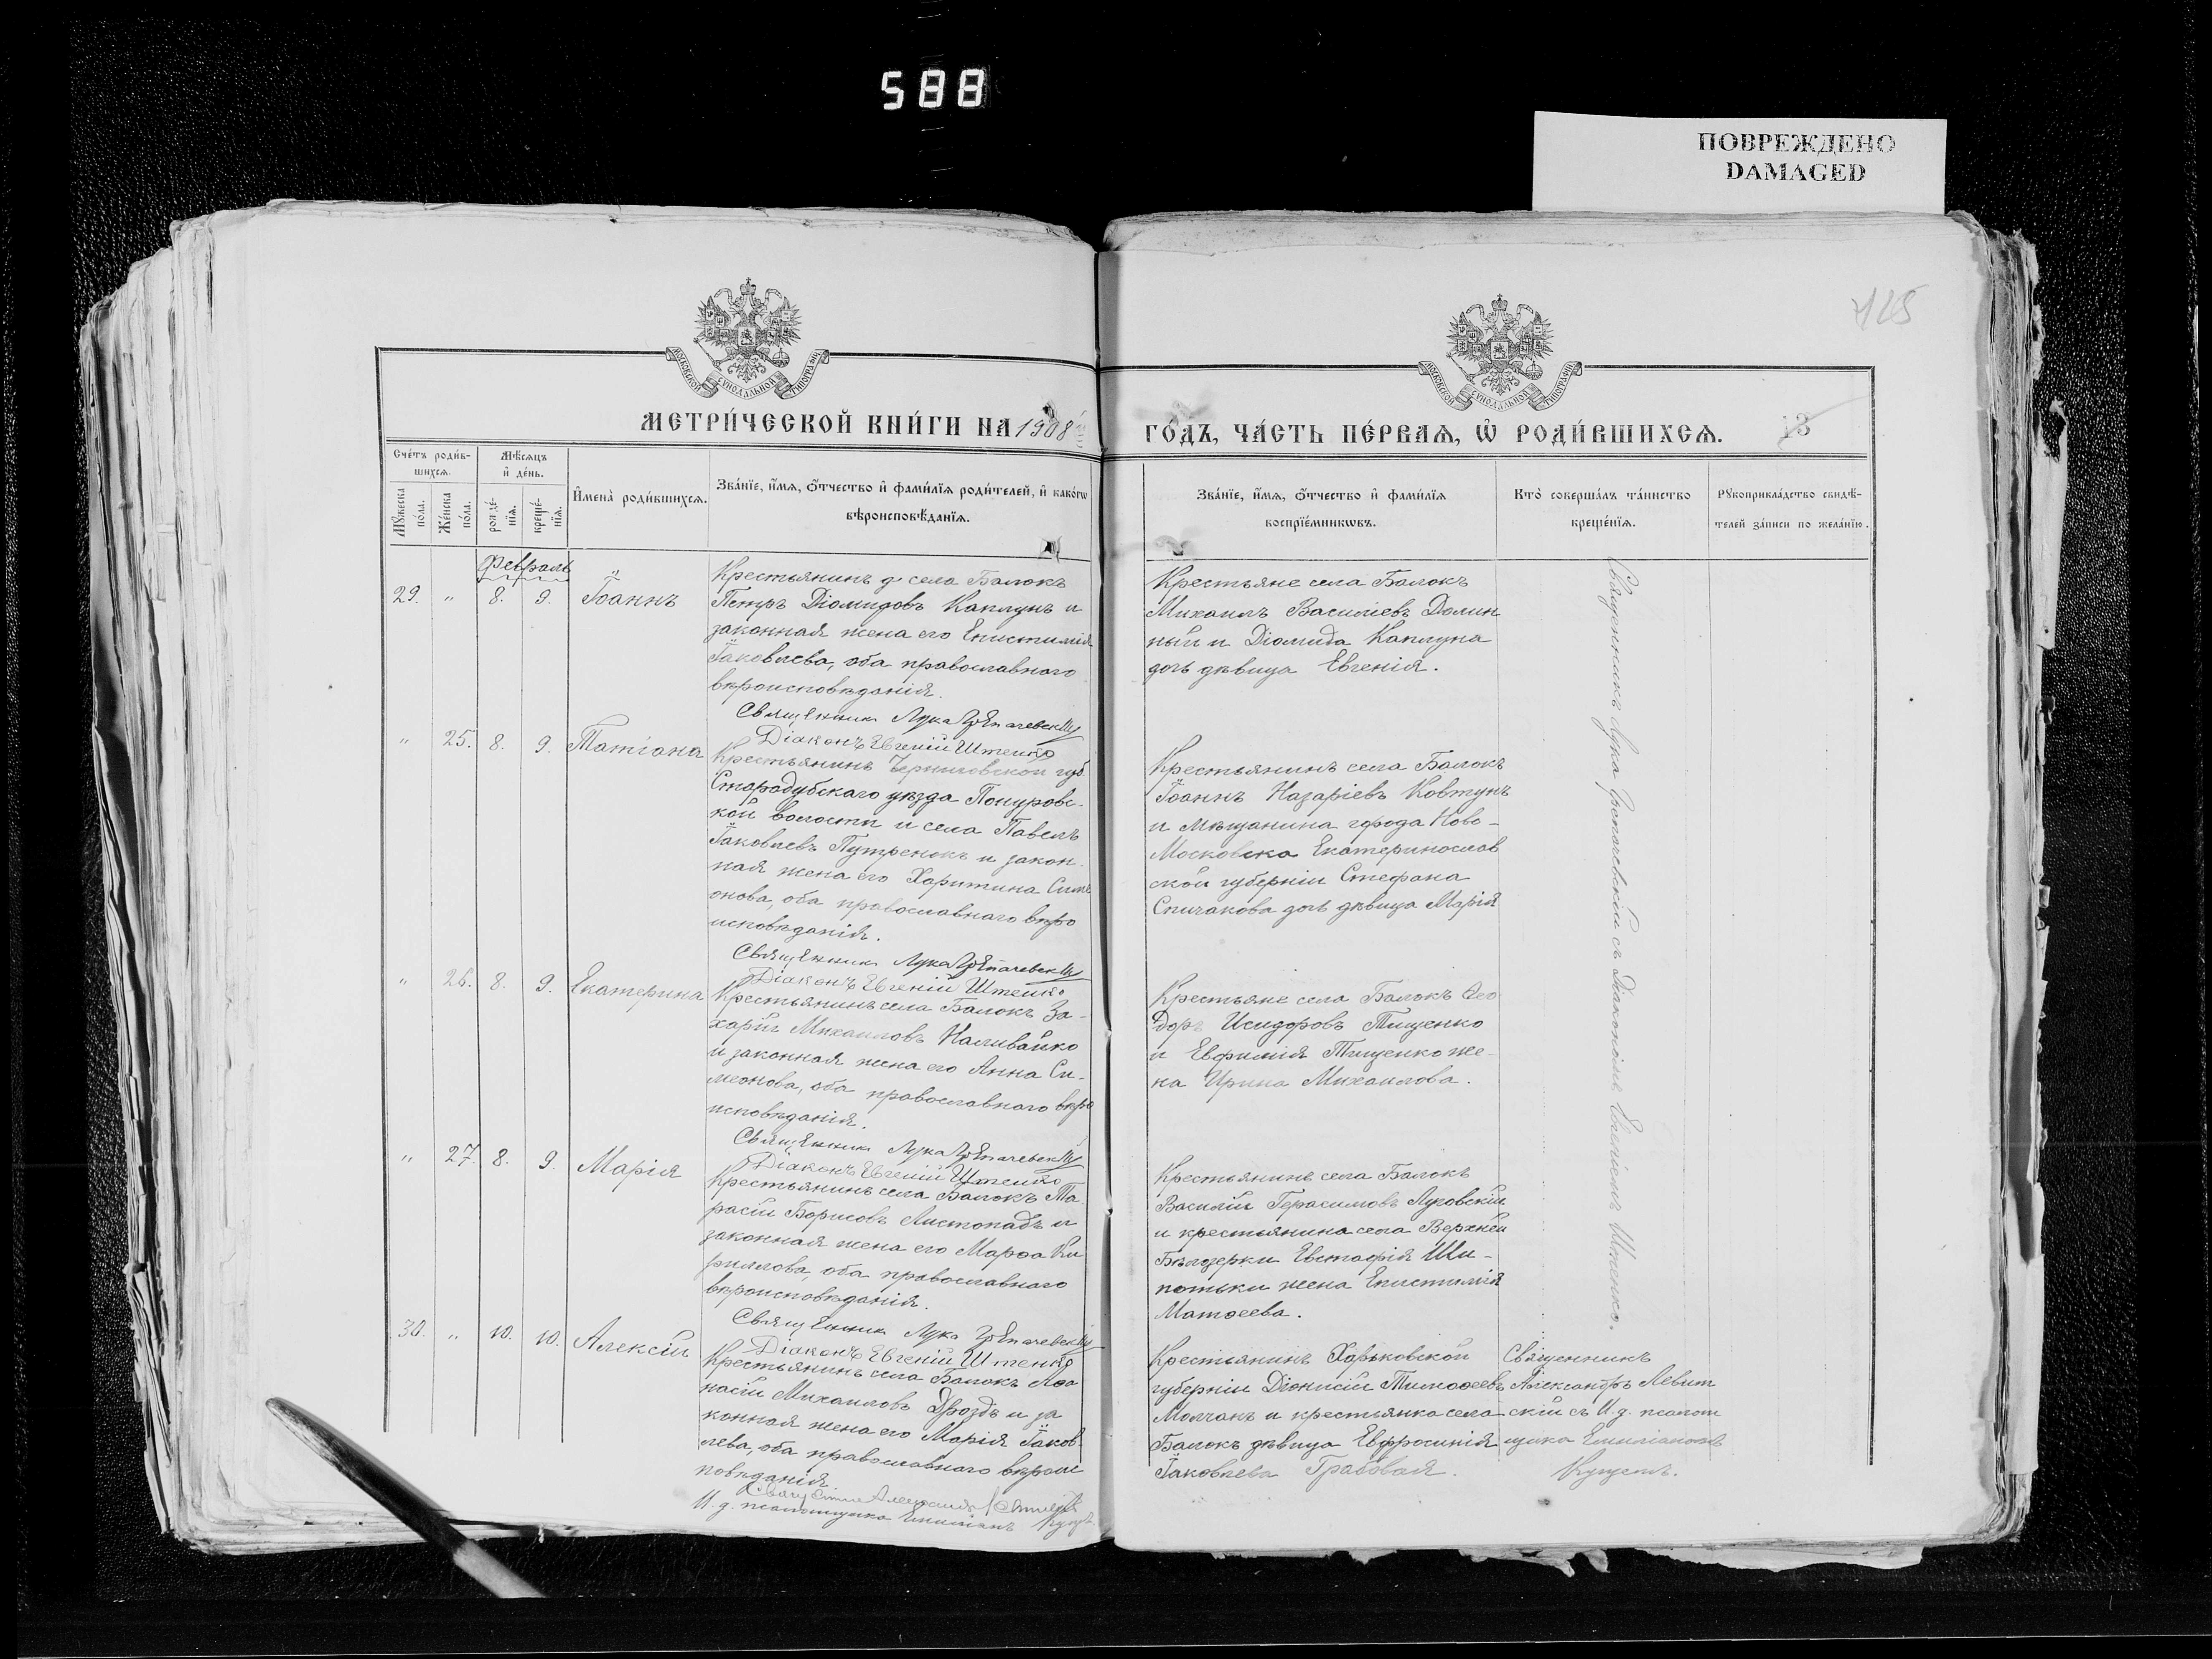 588
ПОВРЕЖДЕНО
DAMAGED
125
МОСКОВСКОЙ СѴНОДАЛЬНОЙ ТИПОГРАФІИ
МОСКОВСКОЙ СѴНОДАЛЬНОЙ ТИПОГРАФІИ
МЕТРИ́ЧЕСКОЙ КНИ́ГИ НА 1908
ГО́ДЪ, ЧА́СТЬ ПЕ́РВАѦ, Ѽ РОДИ́ВШИХСѦ.
13
Сче́тъ роди́в-
шихсѧ.
Мѣ́сѧцъ
и҆ де́нь.
Мꙋ́жеска
по́ла.
Же́нска
по́ла.
рожде́-
нїѧ.
креще́-
нїѧ.
И҆мена̀ роди́вшихсѧ.
Зва́нїе, и҆́мѧ, ѻ҆́тчество и҆ фами́лїѧ роди́телей, и҆ како́гѡ
вѣроисповѣ́данїѧ.
Зва́нїе, и҆́мѧ, ѻ҆́тчество и҆ фами́лїѧ
воспрїе́мникѡвъ.
Кто̀ соверша́лъ та́инство
креще́нїѧ.
Рꙋкоприкла́дство свидѣ́-
телей за́писи по жела́нїю.
Февраль
29. " 8. 9. Іоаннъ
Крестьянинъ села Балокъ
Петръ Діомидовъ Каплунъ и
законная жена его Епистимія
Іаковлева, оба православнаго
вѣроисповѣданія.
Священникъ Лука
Діаконъ Евгеній Штенко
Крестьяне села Балокъ
Михаилъ Василіевъ Долин
ный и Діомида Каплуна
дочь дѣвица Евгенія.
" 25. 8. 9. Татіана
Крестьянинъ Черниговской губ.
Стародубскаго уѣзда Понуровс-
кой волости и села Павелъ
Іаковлевъ Путренокъ и закон-
ная жена его Харитина Симе
онова, оба православнаго вѣро
исповѣданія.
Священникъ Лука
Діаконъ Евгеній Штенко
Крестьянинъ села Балокъ
Іоаннъ Назаріевъ Ковтунъ
и мѣщанина города Ново-
Московска Екатеринослав
ской губерніи Стефана
Спичакова дочь дѣвица Марія
" 26. 8. 9. Екатерина
Крестьянинъ села Балокъ За-
харій Михаиловъ Наливайко
и законная жена его Анна Си-
меонова, оба православнаго вѣро
исповѣданія.
Священникъ Лука
Діаконъ Евгеній Штенко
Крестьяне села Балокъ Ѳео
доръ Исидоровъ Тищенко
и Евфимія Тищенко же-
на Ирина Михаилова.
" 27. 8. 9. Марія
Крестьянинъ села Балокъ Та
расій Борисовъ Листопадъ и
законная жена его Марѳа Ки
риллова, оба православнаго
вѣроисповѣданія.
Священникъ Лука
Діаконъ Евгеній Штенко
Крестьянинъ села Балокъ
Василій Герасимовъ Луговскій
и крестьянина села Верхней
Бѣлозерки Евстафія Ши-
потьки жена Епистимія
Матѳеева.
30. " 10. 10. Алексій
Крестьянинъ села Балокъ Аѳа
насій Михаиловъ Дроздъ и за
конная жена его Марія Іаков-
лева, оба православнаго вѣроис
повѣданія
Священникъ Александръ
И. д. псаломщика Емиліанъ
Крестьянинъ Харьковской
губерніи Діонисій Тимоѳеевъ
Молчанъ и крестьянка села
Балокъ дѣвица Евфросинія
Іаковлева Грабовая.
Священникъ Лука съ Діакономъ Евгеніемъ Штенко.
Священникъ
Александръ Левит
скій съ И. д. псалом
щика Емиліаномъ